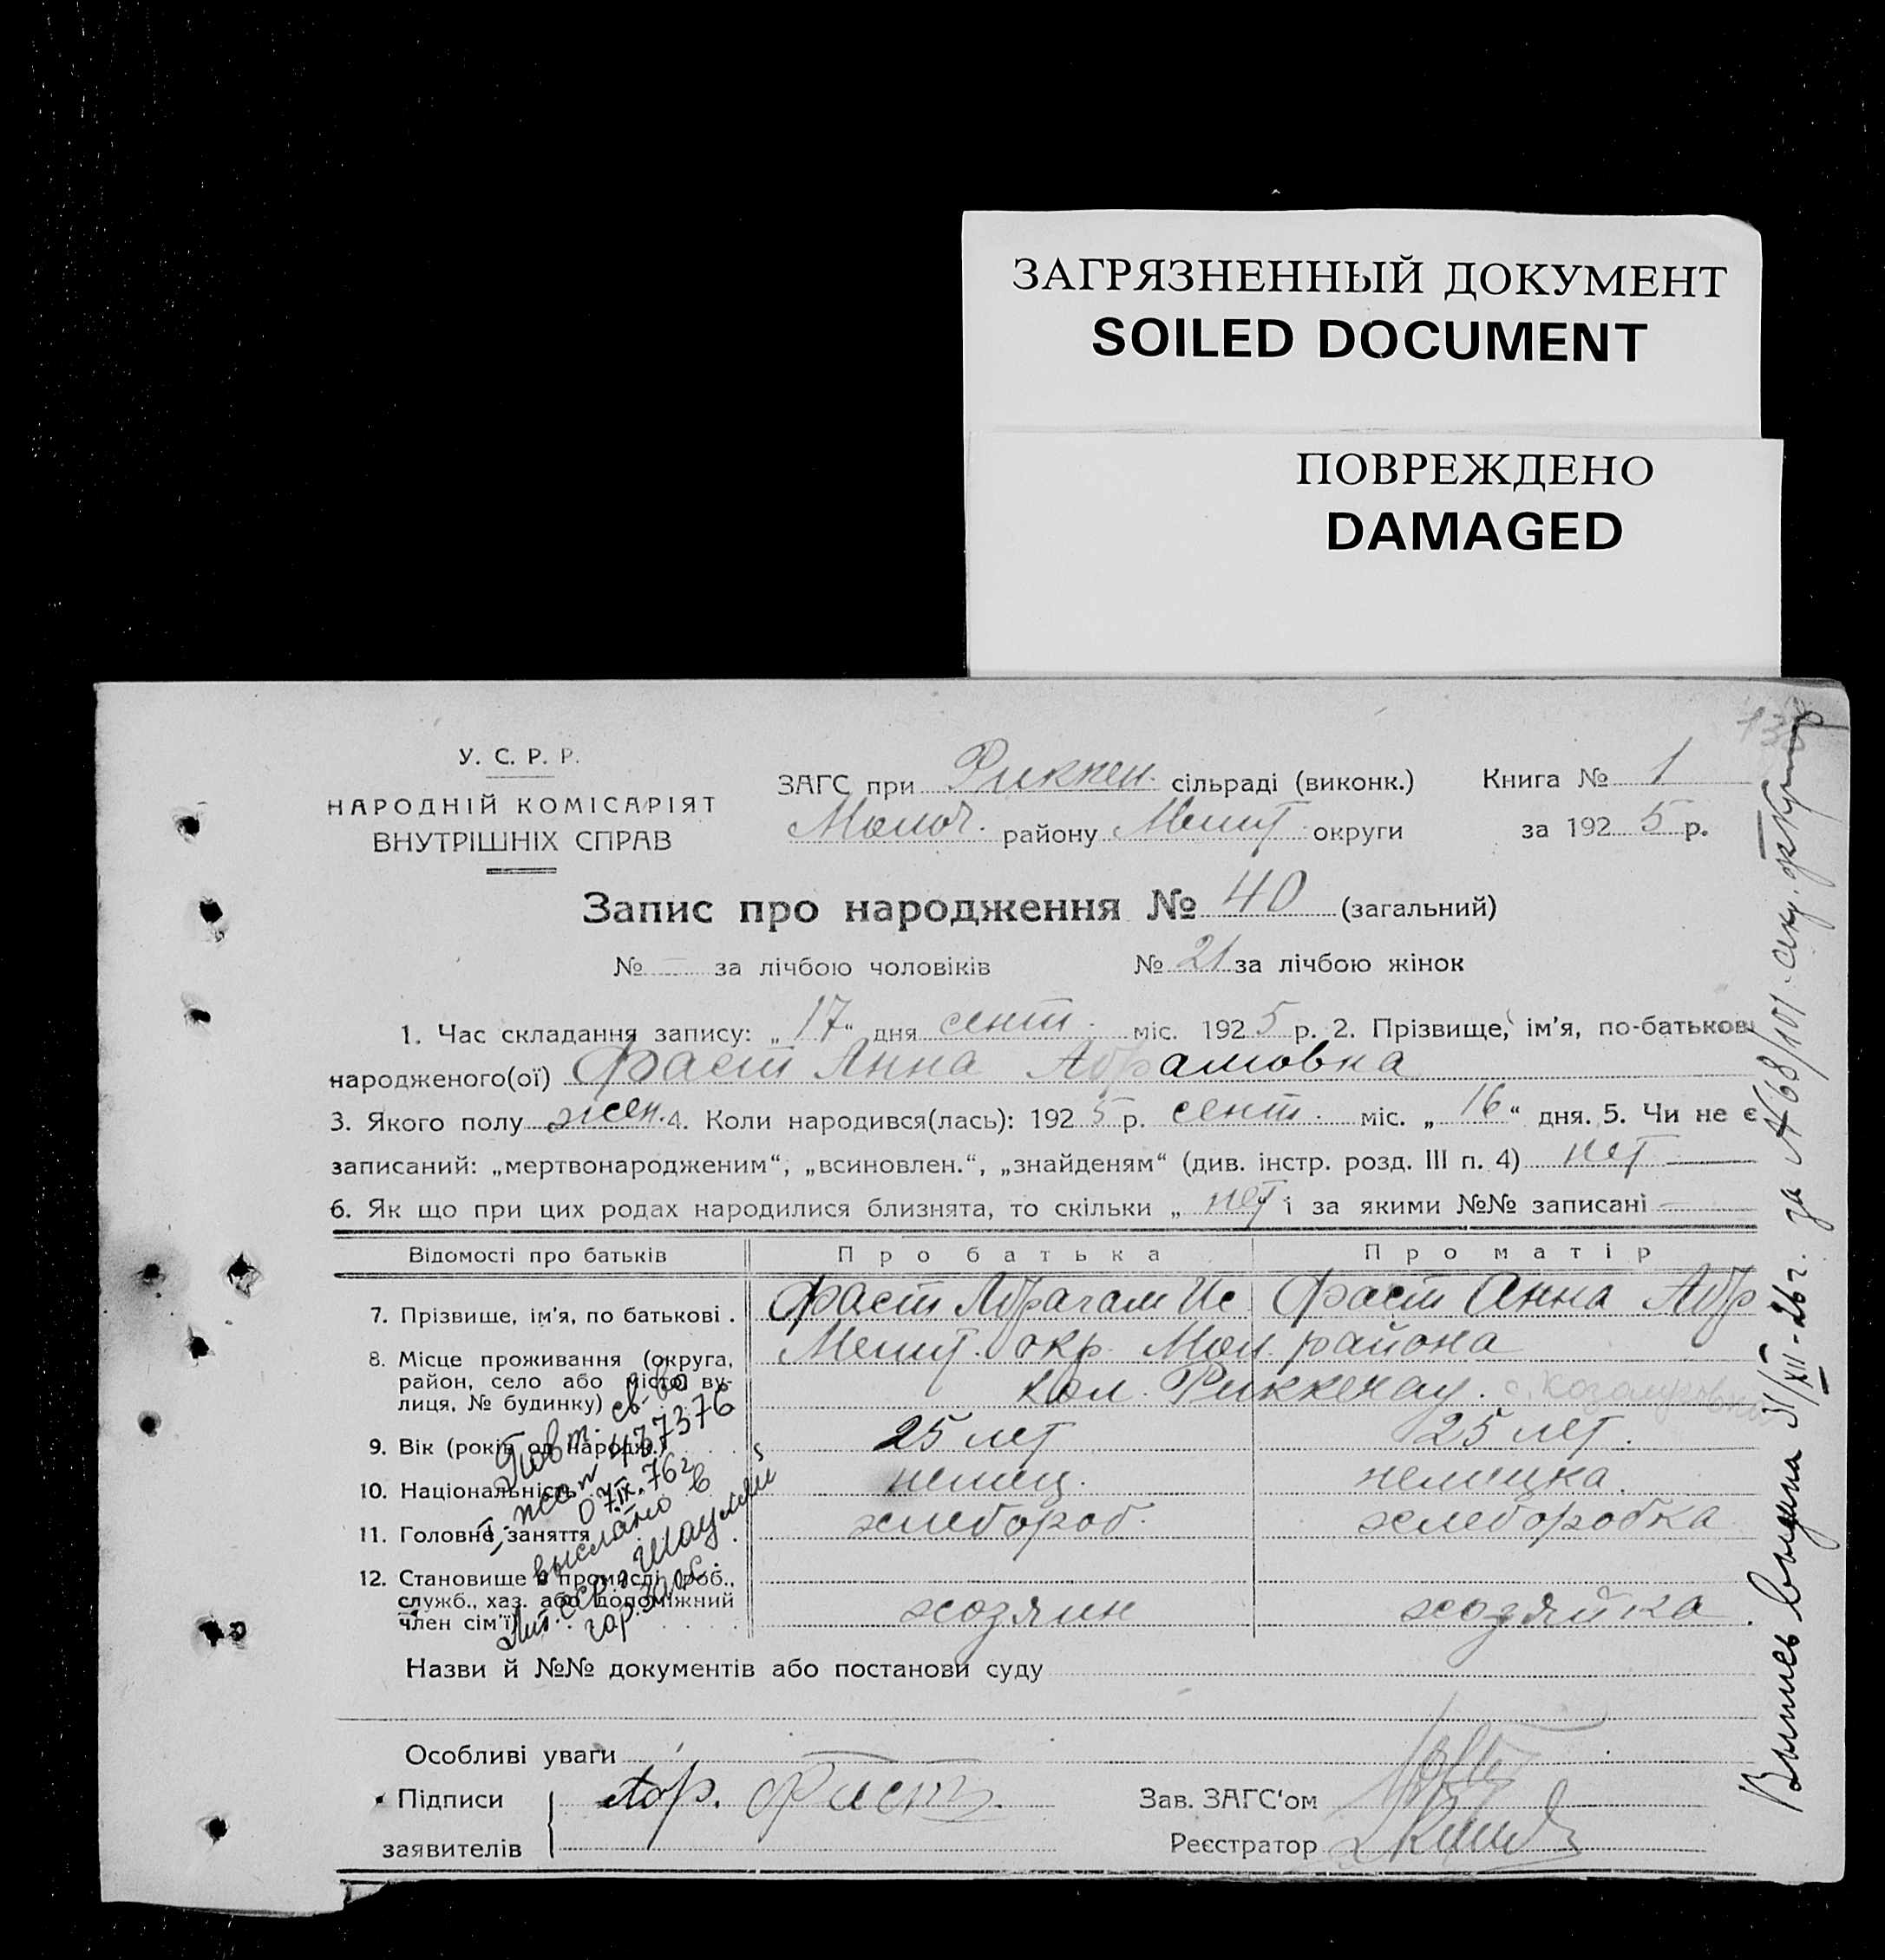 ЗАГРЯЗНЕННЫЙ ДОКУМЕНТ
SOILED DOCUMENT
ПОВРЕЖДЕНО
DAMAGED
У. С. Р. Р.
НАРОДНІЙ КОМІСАРІЯТ
ВНУТРІШНІХ СПРАВ
ЗАГС при Риккен. сільраді (виконк.) Книга № 1
Молоч. району Мелит. округи за 1925 р.
Запис про народження № 40 (загальний)
№ — за лічбою чоловіків № 21 за лічбою жінок
1. Час складання запису: „17“ дня сент. міс. 1925 р. 2. Прізвище, ім'я, по-батькові
народженого(ої) Фаст Анна Абрамовна
3. Якого полу жен. 4. Коли народився(лась): 1925 р. сент. міс. „16“ дня. 5. Чи не є
записаний: „мертвонародженим“, „всиновлен.“, „знайденям“ (див. інстр. розд. III п. 4) нет
6. Як що при цих родах народилися близнята, то скільки „ нет і за якими №№ записані —
Відомості про батьків Про батька Про матір
7. Прізвище, ім'я, по батькові . Фаст Абрагам Ис Фаст Анна Абр
8. Місце проживання (округа, район, село або місто, ву-лиця, № будинку) Мелит. окр. Мол. района
Кол. Риккенау.
9. Вік (років од народж.) 25 лет 25 лет.
10. Національність немец. немецка.
11. Головне заняття хлебороб. хлеборобка
12. Становище в промислі роб.,
служб., хаз. або допоміжний
член сім'ї хозяин хозяйка
Назви й №№ документів або постанови суду
Особливі уваги
Підписи Абр. Фаст. Зав. ЗАГС'ом
заявителів Реєстратор
Повт. св-во
437376
7.IX.76г
выслано в
Лит. ССР г. Шауляй
гор. загс.
Выпись выдана 31/XII-26г. за № 68/101